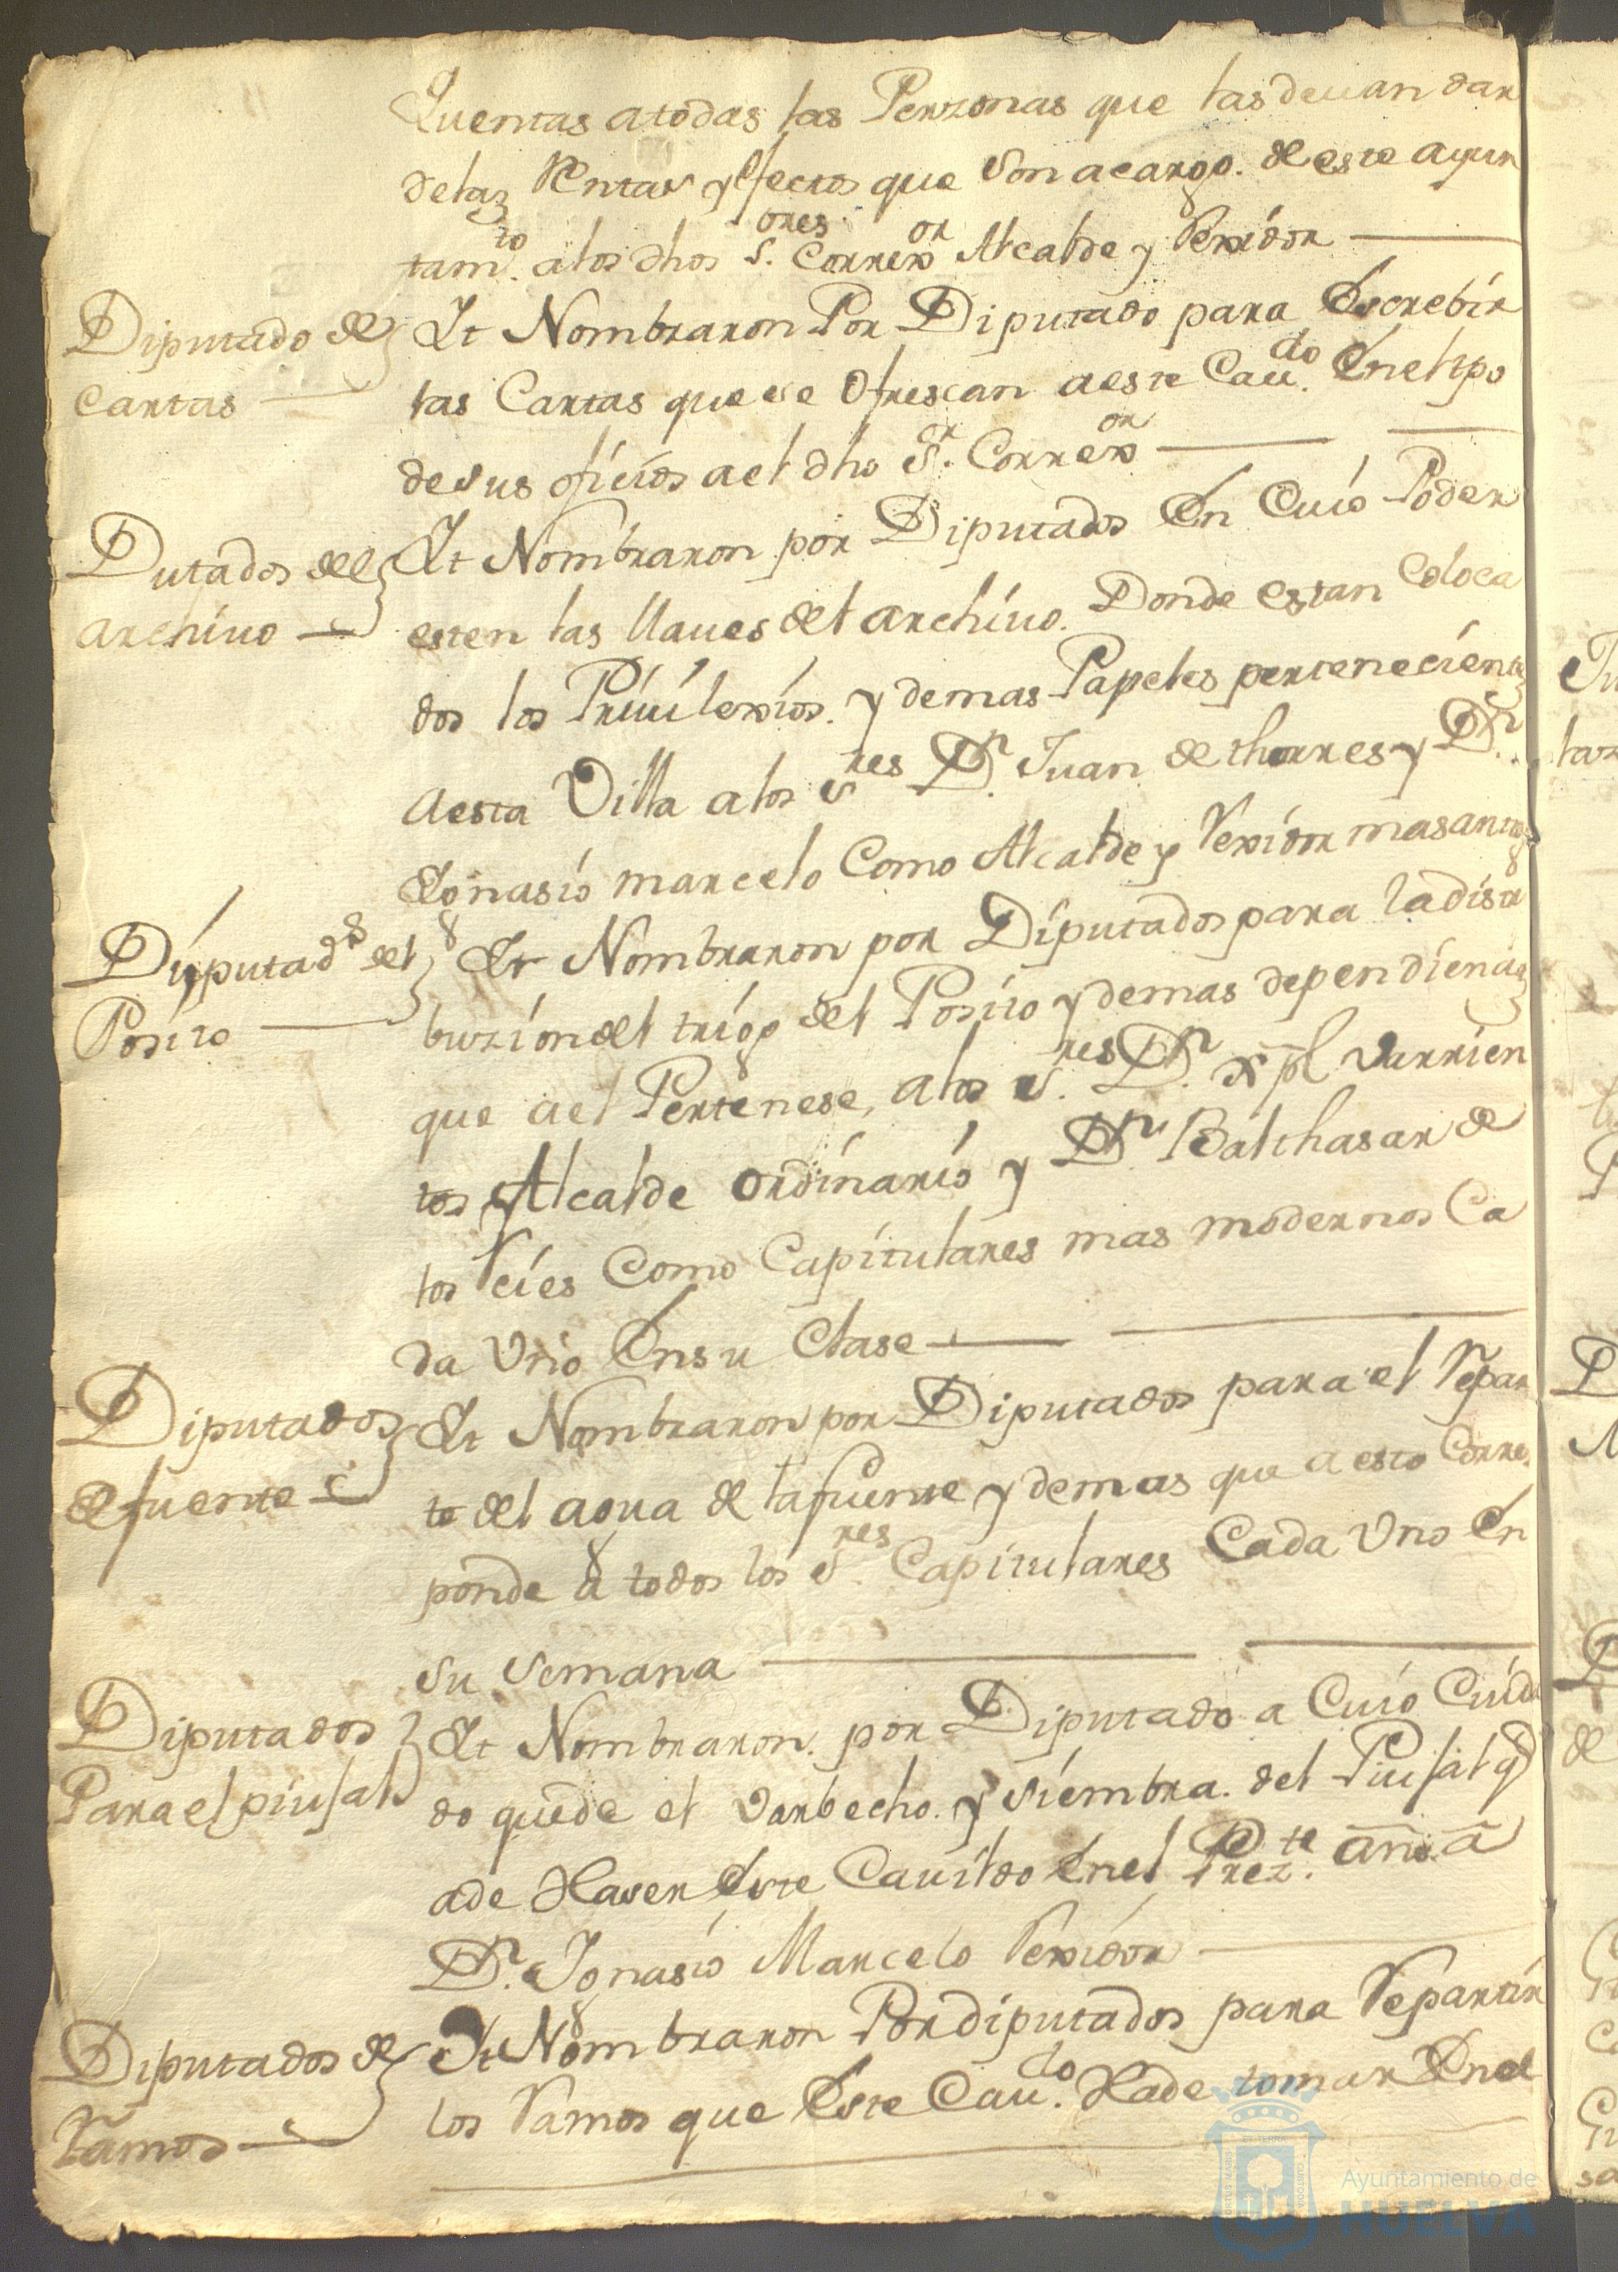 Quentas a todas las Perzonas que las deuan dar
de las Rentas y efectos que son a cargo. de este ayun
tam.to a los dhos S.ores Correx.or Alcalde y Rexidor
Diputado de
cartas
It Nombraron Por Diputado para Escrebir
las Cartas que se ofrescan a este Cau.do En el tpo
de sus oficios a el dho S.r Correx.or
Dutados del
archiuo
It Nombraron por Diputados En Cuio Poder
esten las llaues del archiuo. Donde estan Coloca
dos los Priuilexios. y demas Papeles pertenecientes
a esta Villa a los S.res D.n Juan de thorres y D.n
Ignasio marcelo Como Alcalde y Rexidor mas antig.s
Diputad.s del
Posito
It Nombraron por Diputados para la distr
buzion del trigo del Posito y demas dependiencias
que a el Pertenese, a los S.res D.n Xpl Varrien
tos Alcalde ordinario y D.n Balthasar de
los Reies Como Capitulares mas modernos Ca
da Vno En su Clase
Diputados
de fuente
It Nombraron por Diputados para el Repar
to del agua de la fuente y demas que a esto Corres
ponde a todos los S.res Capitulares Cada Vno En
su semana
Diputados
Para el piujal
It Nombraron. por Diputado a Cuio Cuida
do quede el Varbecho. y siembra. del Piujal q
a de Haser Este Cauildo En el Prez.te año a
D.n Ignasio Marcelo Rexidor
Diputados de
Ramos
It Nombraron Por diputados para Repartir
los Ramos que Este Cau.do Ha de tomar En el
Ayuntamiento de
HUELVA